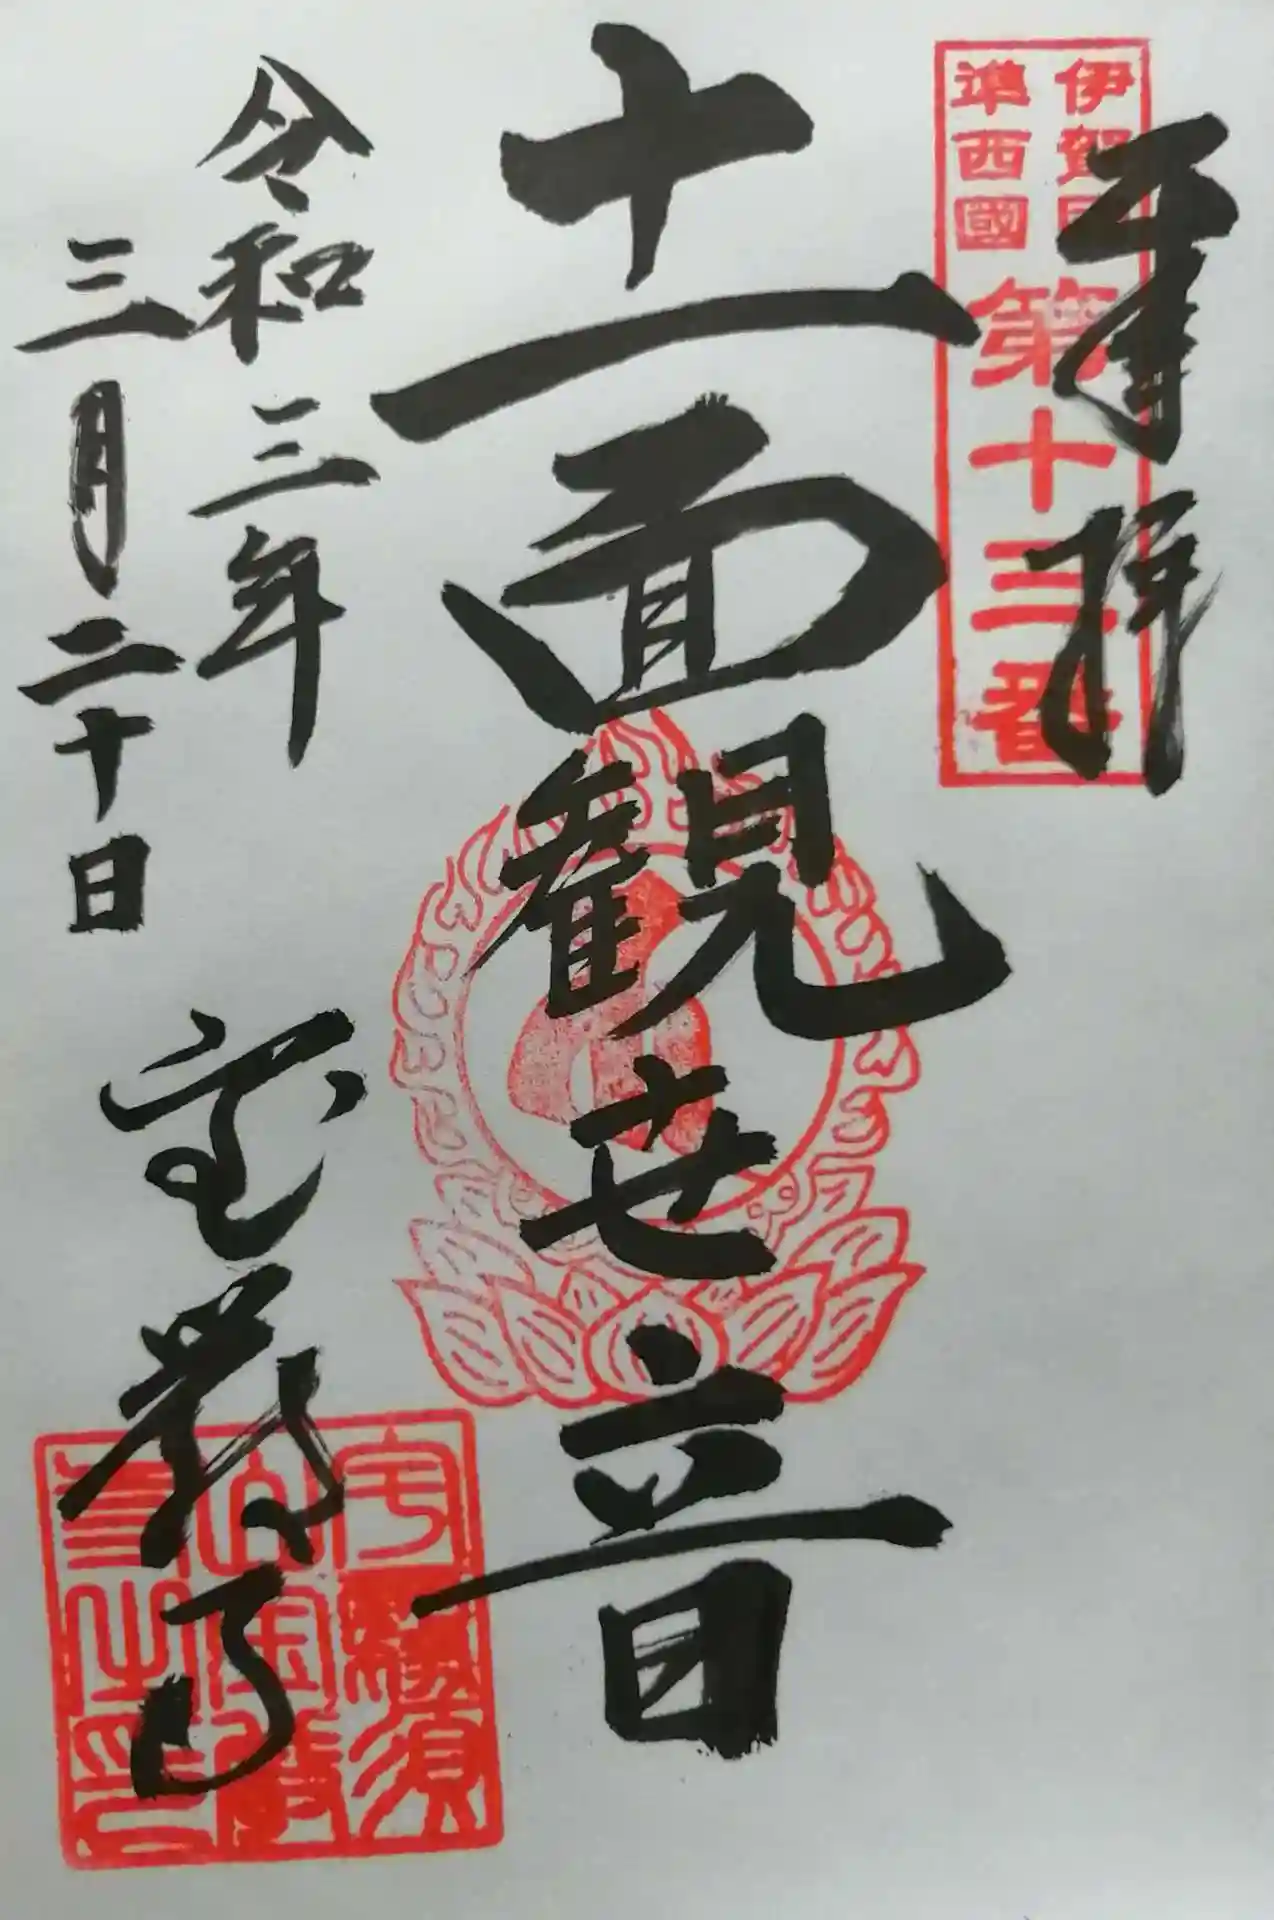 奉拝
伊賀國
準西國
第十三番
十一面観世音
令和三年
三月二十日
宝厳寺